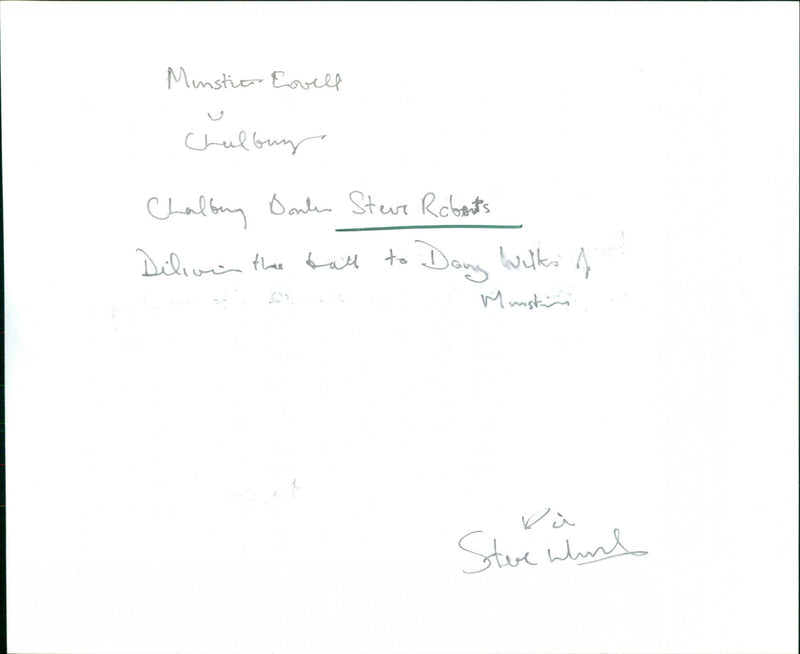 Munster Lovell
v
Chalbury
Chalbury Steve Roberts
Delivers the ball to Doug Wilks of
Munster
Pic
Steve